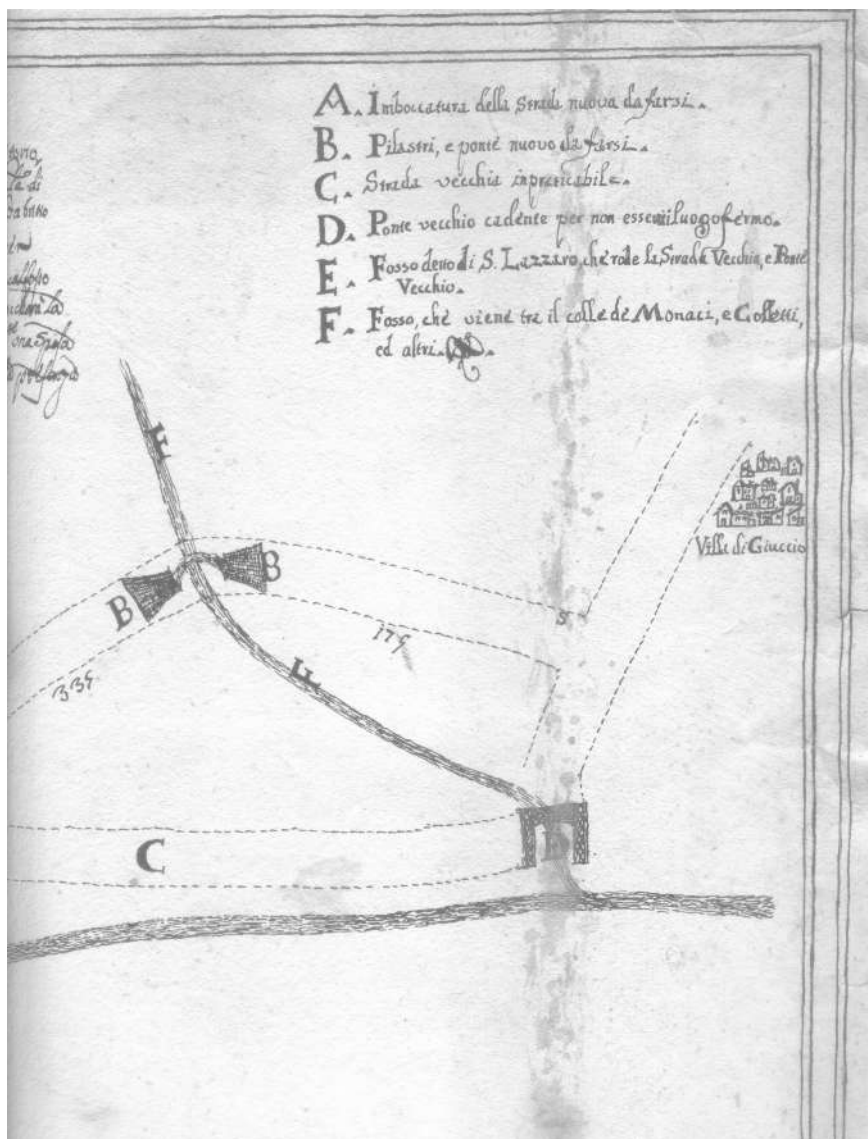 A. Imboccatura della Strada nuova da farsi.
B. Pilastri, e ponte nuovo da farsi.
C. Strada vecchia inpraticabile.
D. Ponte vecchio cadente per non esservi luogo fermo.
E. Fosso detto di S. Lazzaro, che rode la Strada Vecchia, e Ponte
Vecchio.
F. Fosso, che viene tra il colle de Monaci, e Colletti,
ed altri.
F
B
B
Ville di Giuccio
S
175
F
335
C
D